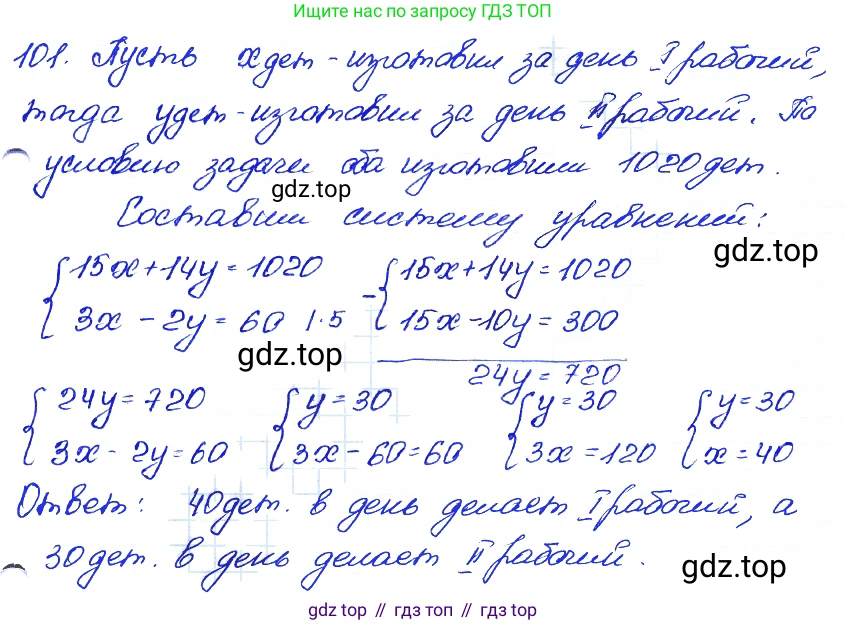 Ищите нас по запросу ГДЗ ТОП
101. Пусть х дет - изготовил за день I рабочий,
тогда у дет - изготовил за день II рабочий. По
условию задачи оба изготовили 1020 дет.
gdz.top
Составим систему уравнений:
gdz.top
{ 15x + 14y = 1020 - { 15x + 14y = 1020
{ 3x - 2y = 60 | · 5 { 15x - 10y = 300
gdz.top
24y = 720
{ 24y = 720 { y = 30 { y = 30 { y = 30
{ 3x - 2y = 60 { 3x - 60 = 60 { 3x = 120 { x = 40
Ответ: 40 дет. в день делает I рабочий, а
30 дет. в день делает II рабочий.
gdz.top
gdz top // гдз топ // gdz top